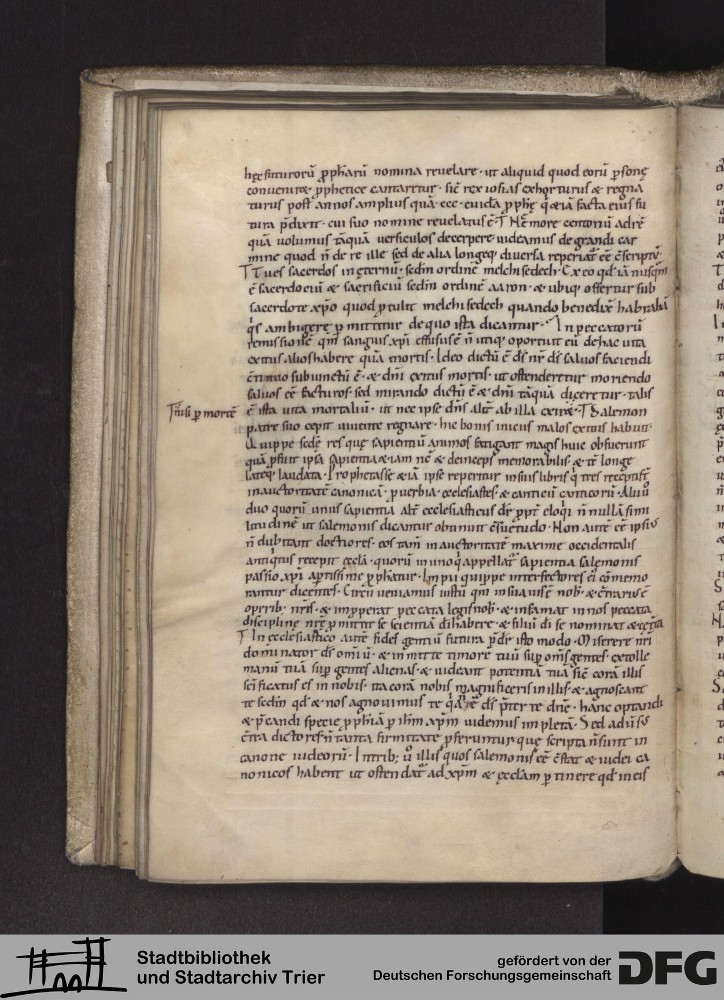 hęc futurorū ꝓphetarū nomina revelare · ut aliquid quod eorū psonę
conveniret ꝓphetice cantaretur · sic rex iosias exhorturus & regna
turus post annos amplius quā · ccc · cuidā ꝓphę q̇ etiā facta eius fu
tura p̄dixit · cui suo nomine revelatus ē · T Nē more centonū ad rē
quā volumus tāquā versiculos decerpere · videamus de grandi car
mine quod n̄ de re illa sed de alia longeq; diversa reperiat esse scriptū ·
T Tu es sacerdos in ęternū · scdm ordinē melchisedech · Ex eo qd iā nusquā
ē sacerdotiū & sacrificiū scdm ordinē aaron · & ubiq; offertur sub
sacerdote xp̄o quod ꝓtulit melchisedech quando benedixit habrahā
q̇s ambigere pmittitur de quo ista dicantur · In peccatorū
remissionē qm̄ sanguis xp̄i effusus ē n̄ utiq; oportuit eū de hac vita
exitus alios habere quā mortis · Ideo dictū ē ds nr̄ ds salvos faciendi
ctinuo subiunctū ē · & dn̄i exitus mortis · ut ostenderetur moriendo
salvos eē facturos · sed mirando dictū ē & dn̄i tāquā diceretur · talis
T nisi p mortē
ē ista vita mortaliū · ut nec ipse dn̄s aliter ab illa exiret · T Salemon
patre suo cepit vivente regnare · hic bonis iniciis malos exitus habuit ·
Quippe secundę res quę sapientiū animos fatigant magis huic obfuerunt
quā pfuit ipsa sapientia etiam nc̄ & deinceps memorabilis · & tc̄ longe
lateq; laudata · Prophetasse etiā ipse reperitur in suis libris q̇ tres recepti sr̄
in auctoritatē canonicā · pverbia · ecclesiastes · & canticū canticorū · Alii v̄
duo quorū unus sapientia · alt ecclesiasticus dr̄ ꝓpt eloqi n̄ nullā simi
litudinē ut salemonis dicantur obtinuit csuetudo · Non autē eē ipsius
n̄ dubitant doctiores · eos tam̄ in auctoritatē maxime occidentalis
antiqtus recepit ecclā · quorū in uno q̇ appellat sapientia salemonis
passio xp̄i aptissime ꝓphatur · Impii quippe interfectores ei cōmemo
rantur dicentes · Circūveniamus iustū qm̄ insuavis ē nob · & ctrarius ē
operib; nris · & imꝓperat peccata legis nob · & infamat in nos peccata
discipline nrę pmittit se scientiā di habere · & filiū di se nominat & cętera
T In ecclesiastico autē fides gentiū futura p̄dr̄ isto modo · Miserere nri
dominator ds omiū · & inmitte timorē tuū sup om̄s gentes · extolle
manū tuā sup gentes alienas · & videant potentiā tuā · sic corā illis
scificatus es in nobis · ita corā nobis magnificeris in illis · & agnoscant
te scdm qd & nos agnovimus te q̇a n̄ ē ds pter te dn̄e · hanc optandi
& p̄candi specie ꝓphiā p ihm̄ xp̄m videmus impletā · Sed adversus
ctradictores n̄ tanta firmitate pferuntur quę scripta n̄ sunt in
canone iudeorū · In trib; v̄ illis quos salemonis eē cstat & iudei ca
nonicos habent ut ostendat ad xp̄m & ęcclam ptinere qd in eis
Stadtbibliothek
und Stadtarchiv Trier
gefördert von der
Deutschen Forschungsgemeinschaft
DFG